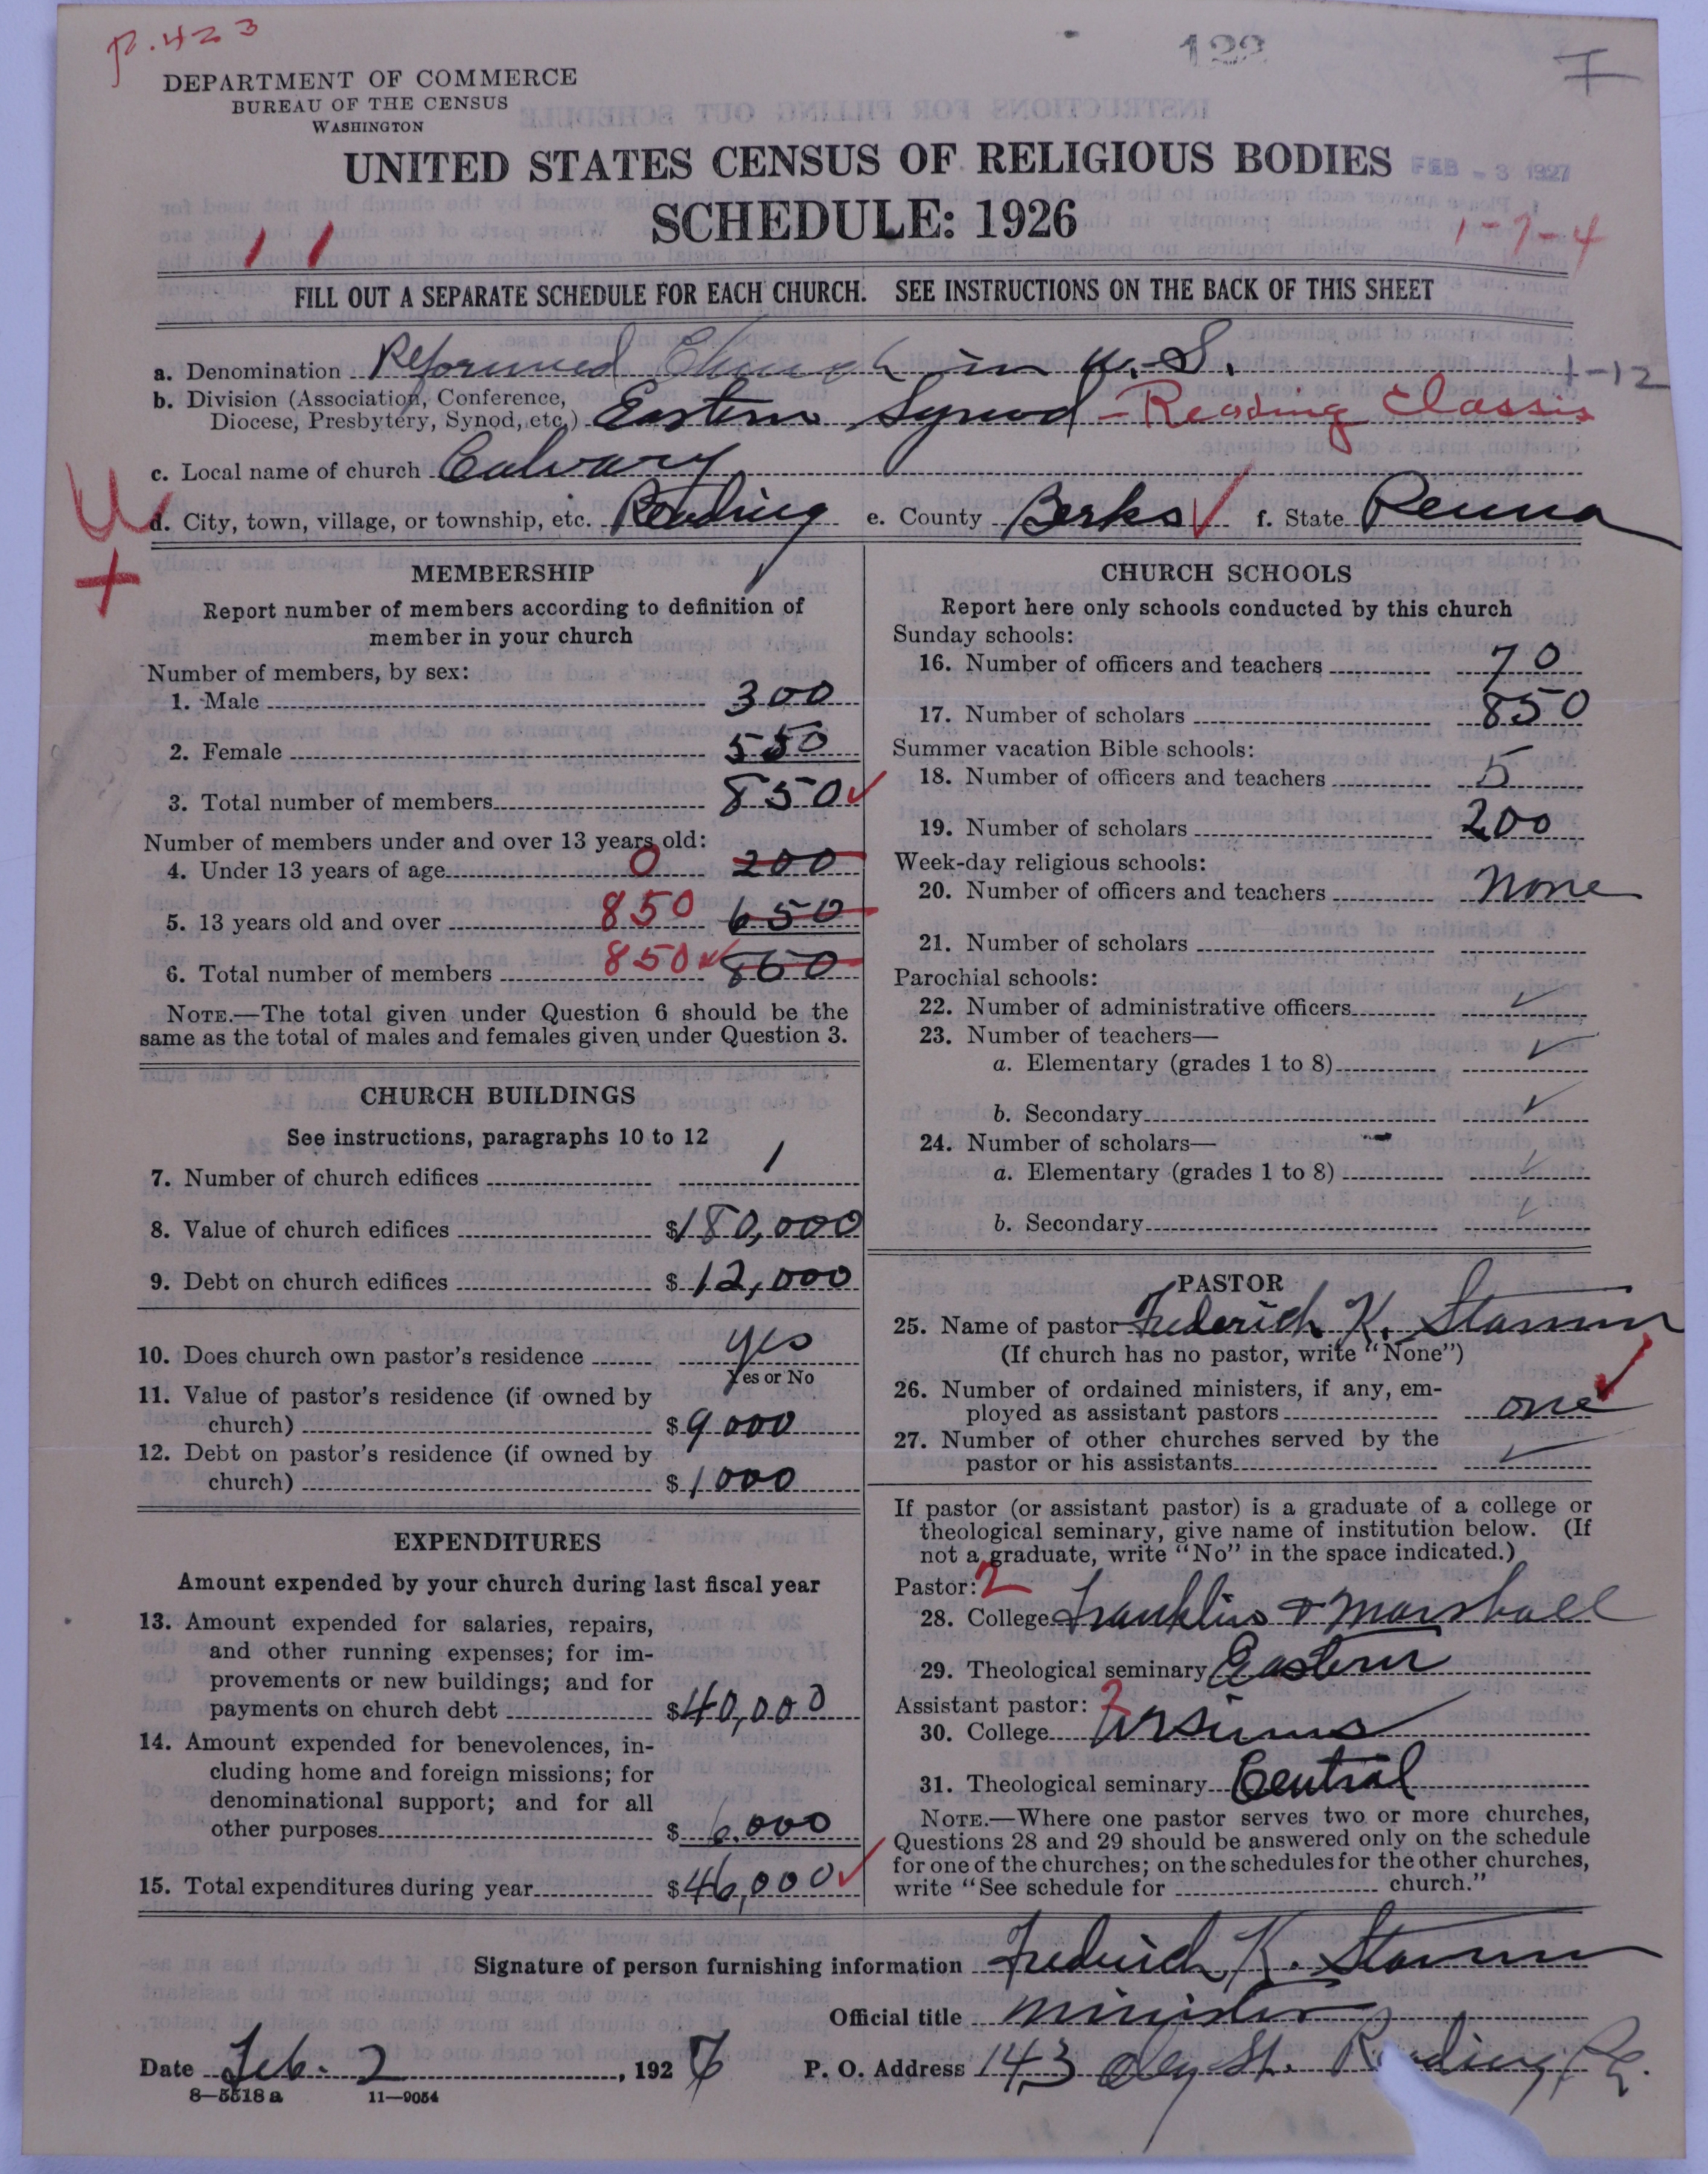 P. 423
122
7
DEPARTMENT OF COMMERCE
BUREAU OF THE CENSUS
WASHINGTON
UNITED STATES CENSUS OF RELIGIOUS BODIES
FEB - 3 1927
SCHEDULE: 1926
1-7-4
FILL OUT A SEPARATE SCHEDULE FOR EACH CHURCH. SEE INSTRUCTIONS ON THE BACK OF THIS SHEET
a. Denomination Reformed Church in U.S.
1-12
b. Division (Association, Conference, Diocese, Presbytery, Synod, etc.) Eastern Synod - Reading Classis
c. Local name of church Calvary
d. City, town, village, or township, etc. Reading e. County Berks f. State Penna
MEMBERSHIP
Report number of members according to definition of
member in your church
Number of members, by sex:
1. Male 300
2. Female 550
3. Total number of members 850
Number of members under and over 13 years old:
4. Under 13 years of age 0 200
5. 13 years old and over 850 650
6. Total number of members 850 850
NOTE.—The total given under Question 6 should be the
same as the total of males and females given under Question 3.
CHURCH BUILDINGS
See instructions, paragraphs 10 to 12
7. Number of church edifices 1
8. Value of church edifices $180,000
9. Debt on church edifices $12,000
10. Does church own pastor's residence yes
Yes or No
11. Value of pastor's residence (if owned by
church) $9000
12. Debt on pastor's residence (if owned by
church) $1000
EXPENDITURES
Amount expended by your church during last fiscal year
13. Amount expended for salaries, repairs,
and other running expenses; for im-
provements or new buildings; and for
payments on church debt $40,000
14. Amount expended for benevolences, in-
cluding home and foreign missions; for
denominational support; and for all
other purposes $6,000
15. Total expenditures during year $46,000
CHURCH SCHOOLS
Report here only schools conducted by this church
Sunday schools:
16. Number of officers and teachers 70
17. Number of scholars 850
Summer vacation Bible schools:
18. Number of officers and teachers 5
19. Number of scholars 200
Week-day religious schools:
20. Number of officers and teachers none
21. Number of scholars
Parochial schools:
22. Number of administrative officers
23. Number of teachers—
a. Elementary (grades 1 to 8)
b. Secondary
24. Number of scholars—
a. Elementary (grades 1 to 8)
b. Secondary
PASTOR
25. Name of pastor Frederick K. Stamm
(If church has no pastor, write "None")
26. Number of ordained ministers, if any, em-
ployed as assistant pastors one
27. Number of other churches served by the
pastor or his assistants
If pastor (or assistant pastor) is a graduate of a college or
theological seminary, give name of institution below. (If
not a graduate, write "No" in the space indicated.)
Pastor: 2
28. College Franklin & Marshall
29. Theological seminary Eastern
Assistant pastor: 2
30. College Ursinus
31. Theological seminary Central
NOTE.—Where one pastor serves two or more churches,
Questions 28 and 29 should be answered only on the schedule
for one of the churches; on the schedules for the other churches,
write "See schedule for church."
Signature of person furnishing information Frederick K. Stamm
Official title minister
Date Feb. 2, 1927 P. O. Address 143 Oley St. Reading, Pa.
8—5518 a 11—9054